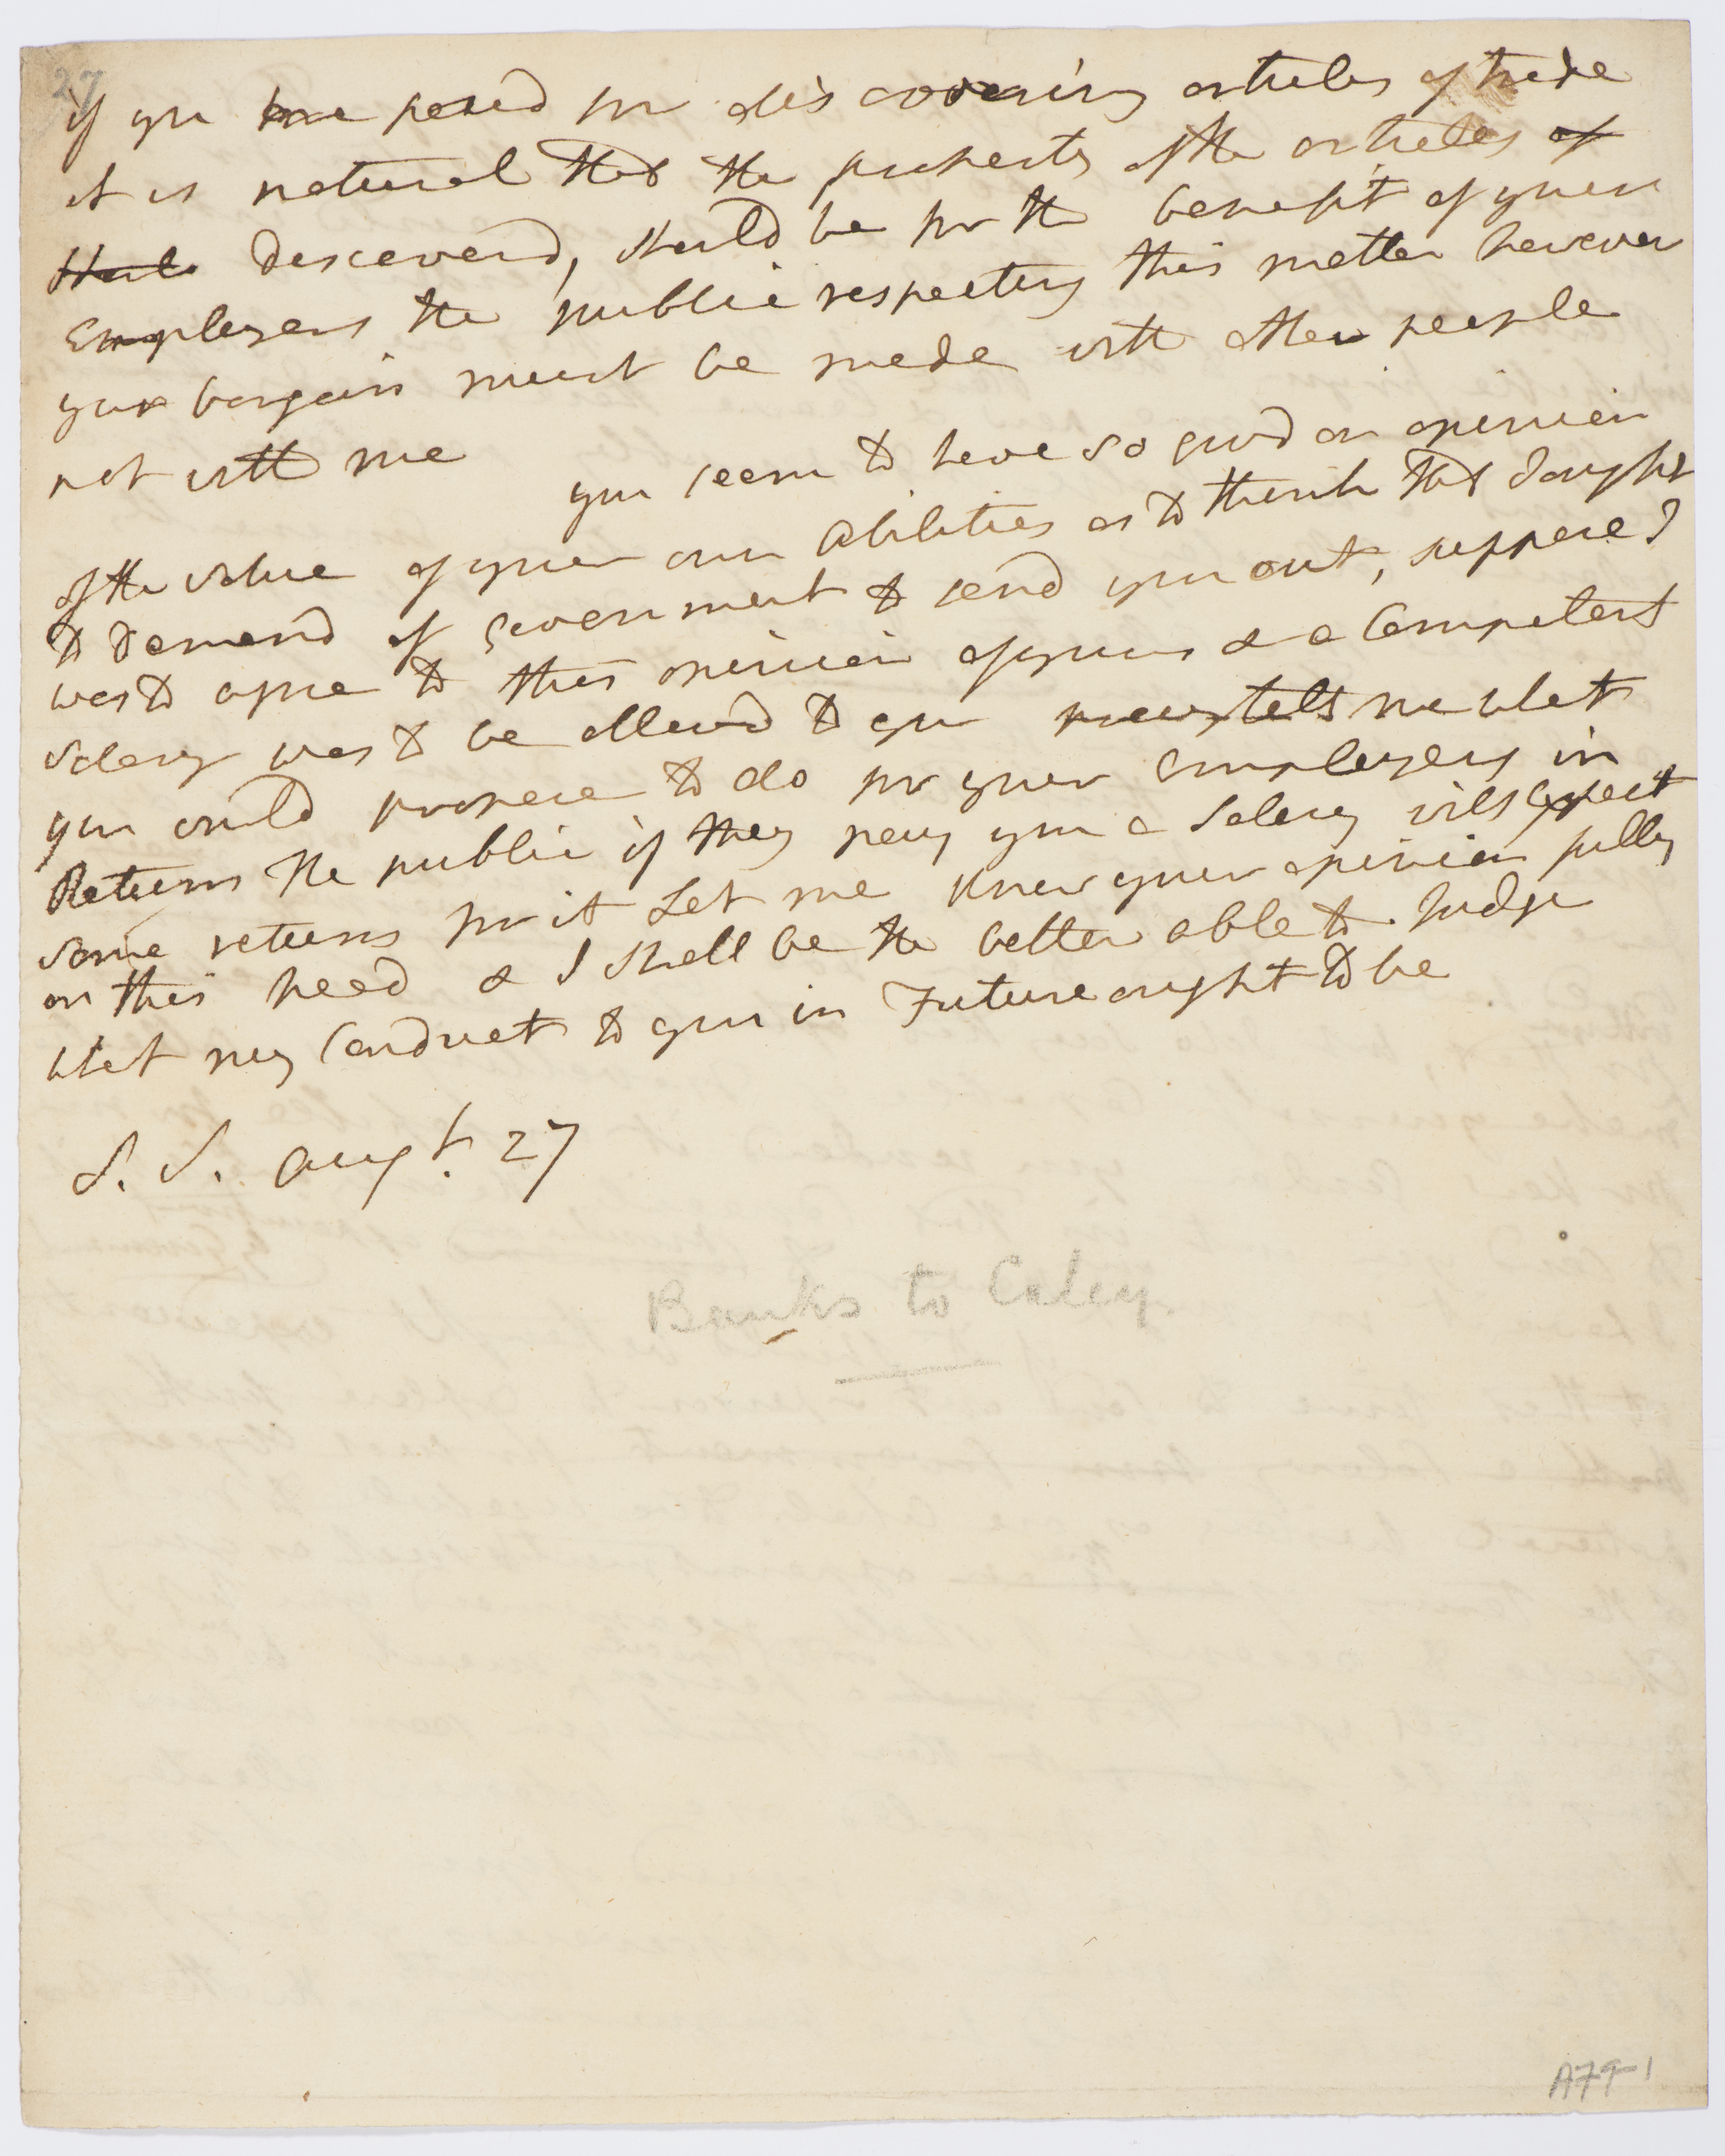 27
if you are payd for discovering articles of trade
it is natural that the property of the articles of
thus discoverd, should be for the benefit of your
Employers the public respecting this matter however
your bargain must be made with other people
not with me
you seem to have so good an opinion
of the value of your own abilities as to think that I ought
to demand of Government to send you out, suppose I
was to agree to this opinion of yours & a Competent
Salary was to be allowd to you pray tell me what
you would propose to do for your employers in
Return the public if they pay you a Salary will expect
some return for it Let me know your opinion fully
on this head & I shall be the better able to Judge
what my Conduct to you in Future ought to be
S. S. Augt. 27
Banks to Caley.
A79-1